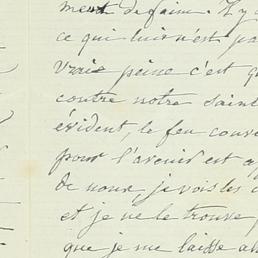 ment de faim. Il y
ce qui lui n'est pa
vraie peine c'est qu
contre notre saint
évident, le feu couve
pour l'avenir est a
de nous, je vois les
et je ne le trouve
que je me laisse a